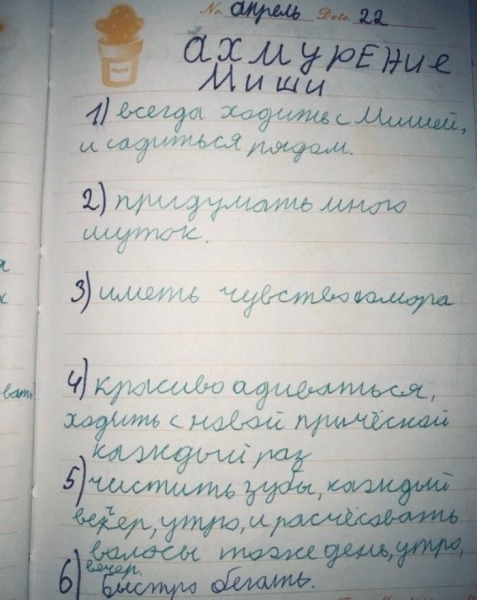 No апрель Date 22
АХМУРЕНИЕ
Миши
1) всегда ходить с Мишей,
и садиться рядом.
2) придумать много
шуток.
3) иметь чувство юмора
4) красиво адиваться,
ходить с новой причёской
каждый раз
5) чистить зубы, каждый
вечер, утро, и расчёсовать
волосы тоже день, утро,
вечер.
6) Быстро бегать.
я
х
вать